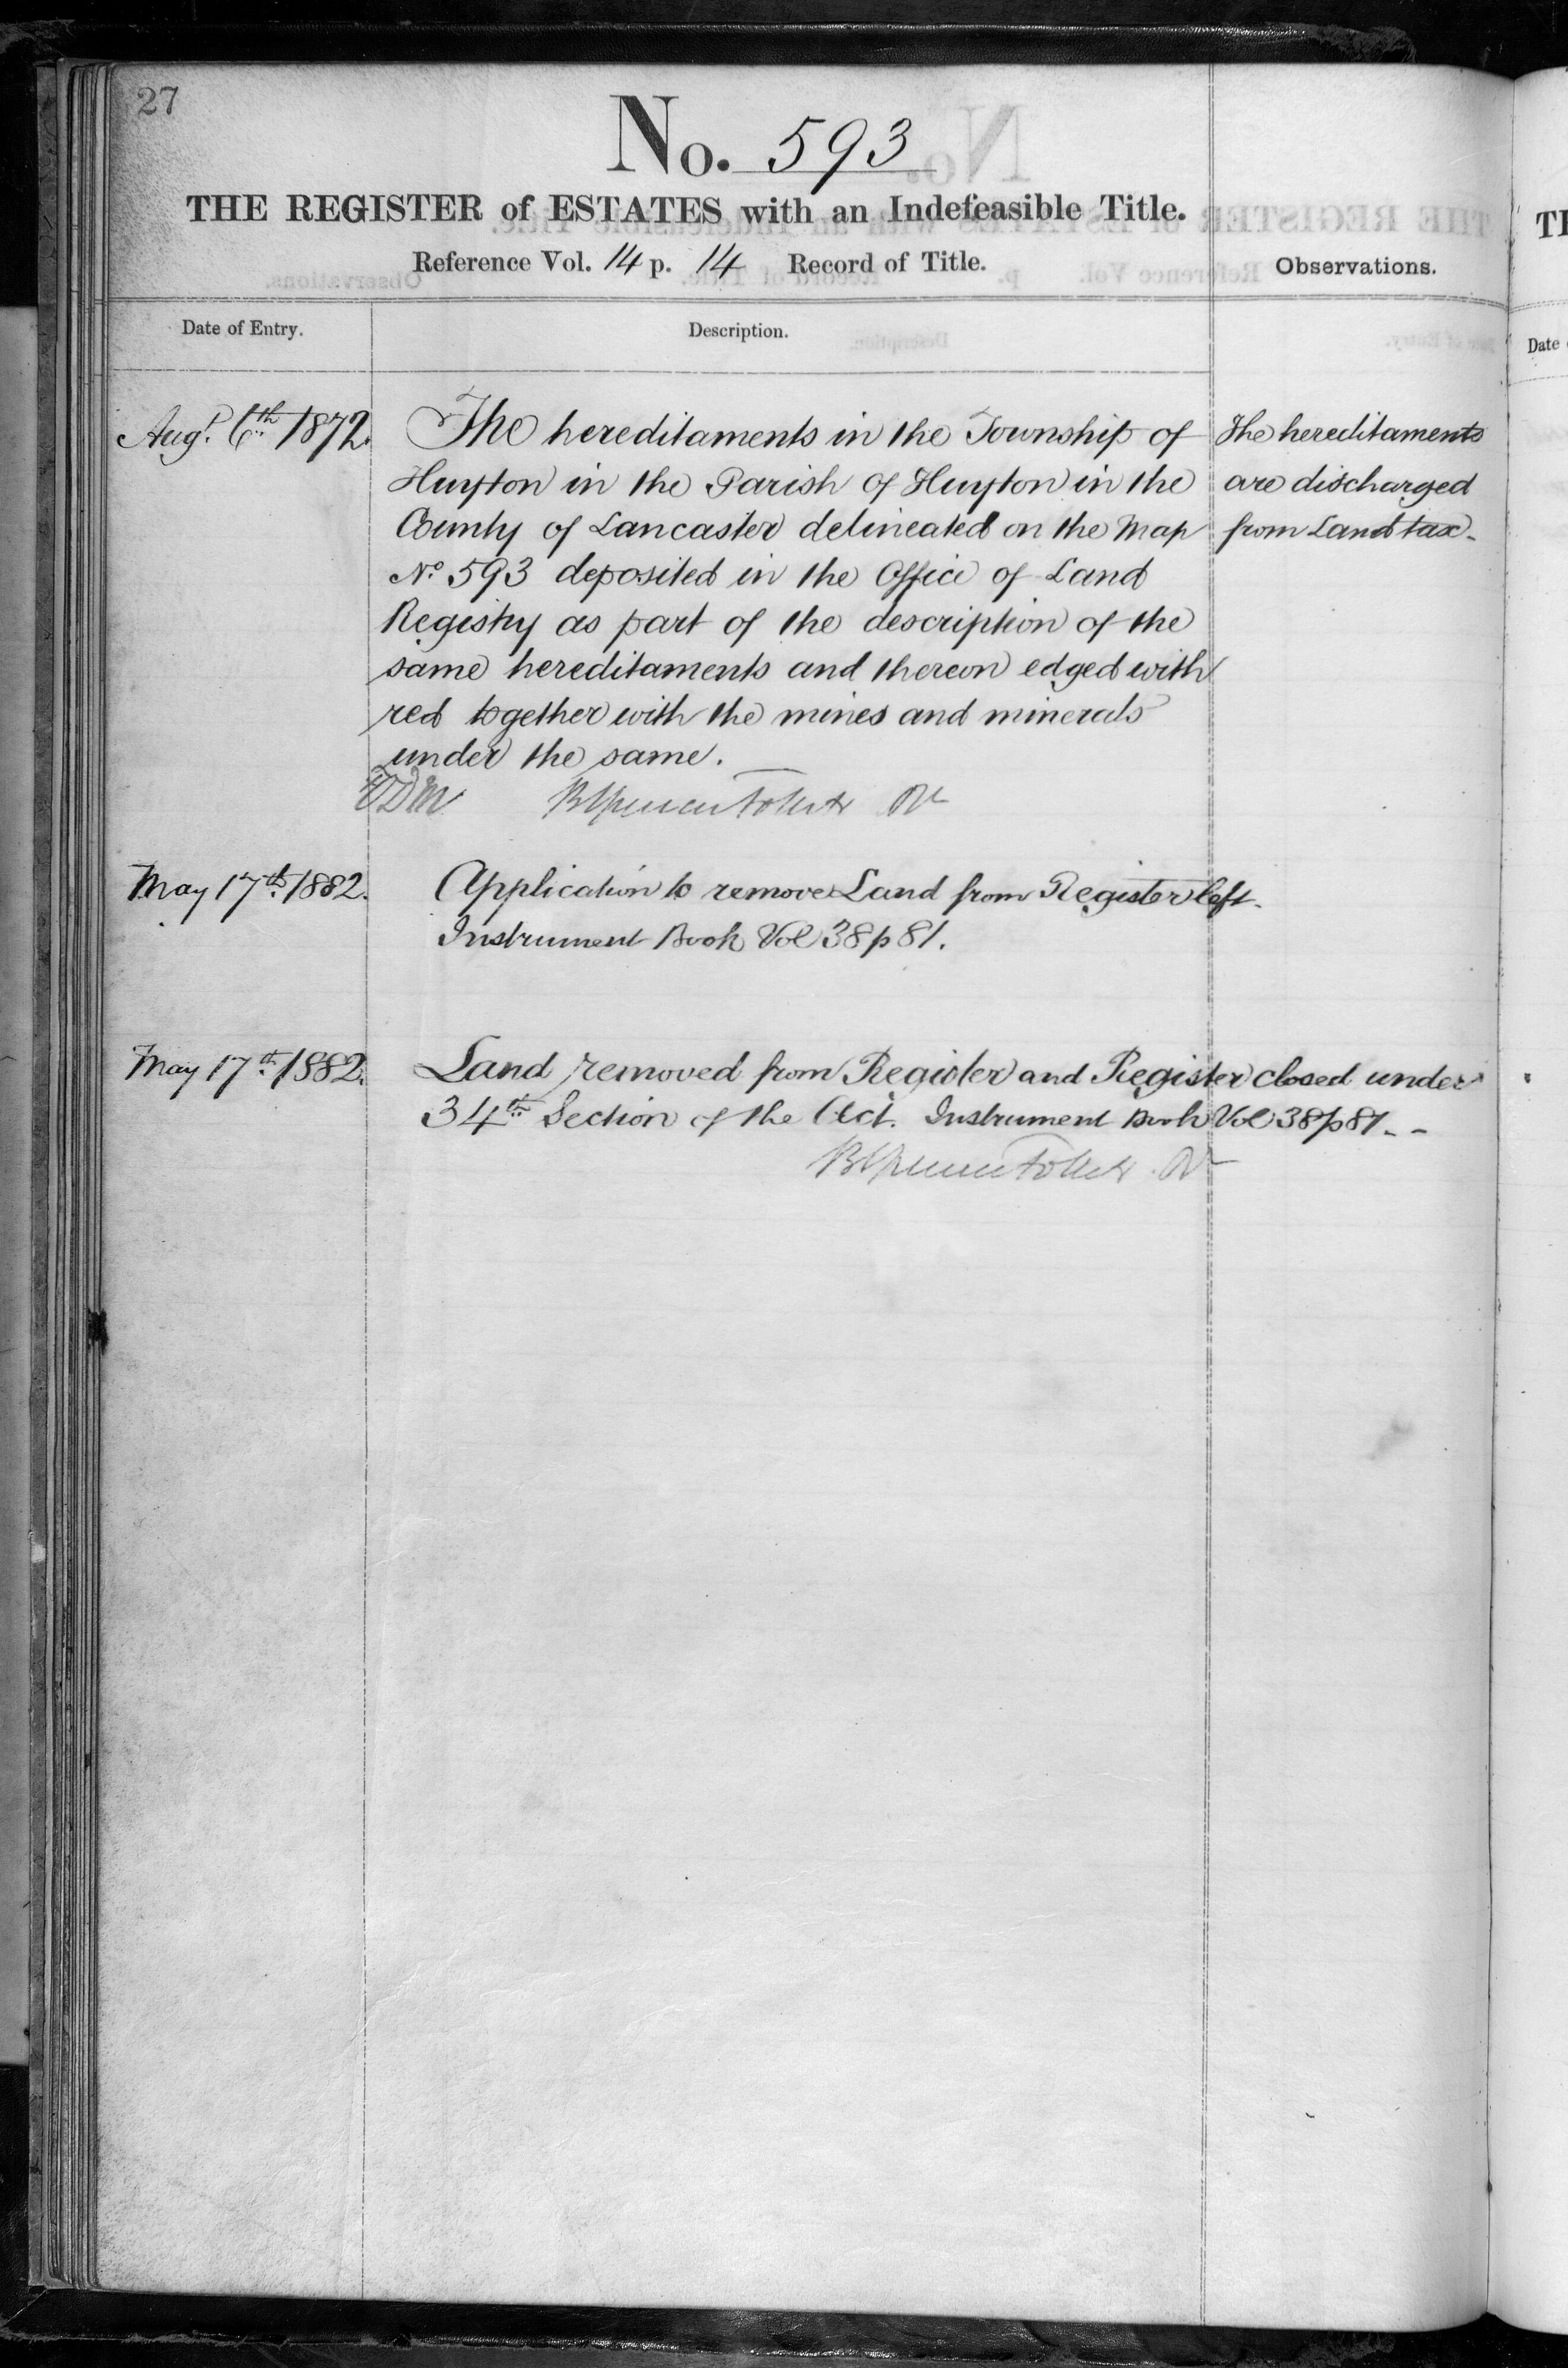 27
No. 593
THE REGISTER of ESTATES with an Indefeasible Title.
Reference Vol. 14 p. 14 Record of Title.
Observations.
Date of Entry.
Description.
Augt. 6th 1872.
The hereditaments in the Township of
Huyton in the Parish of Huyton in the
County of Lancaster delineated on the Map
No. 593 deposited in the Office of Land
Registry as part of the description of the
same hereditaments and thereon edged with
red together with the mines and minerals
under the same.
The hereditaments
are discharged
from Land tax.
May 17th 1882.
Application to remove Land from Register left.
Instrument Book Vol 38 p 81.
May 17th 1882.
Land removed from Register and Register closed under
34th Section of the Act. Instrument Book Vol 38 p 81. -
Date